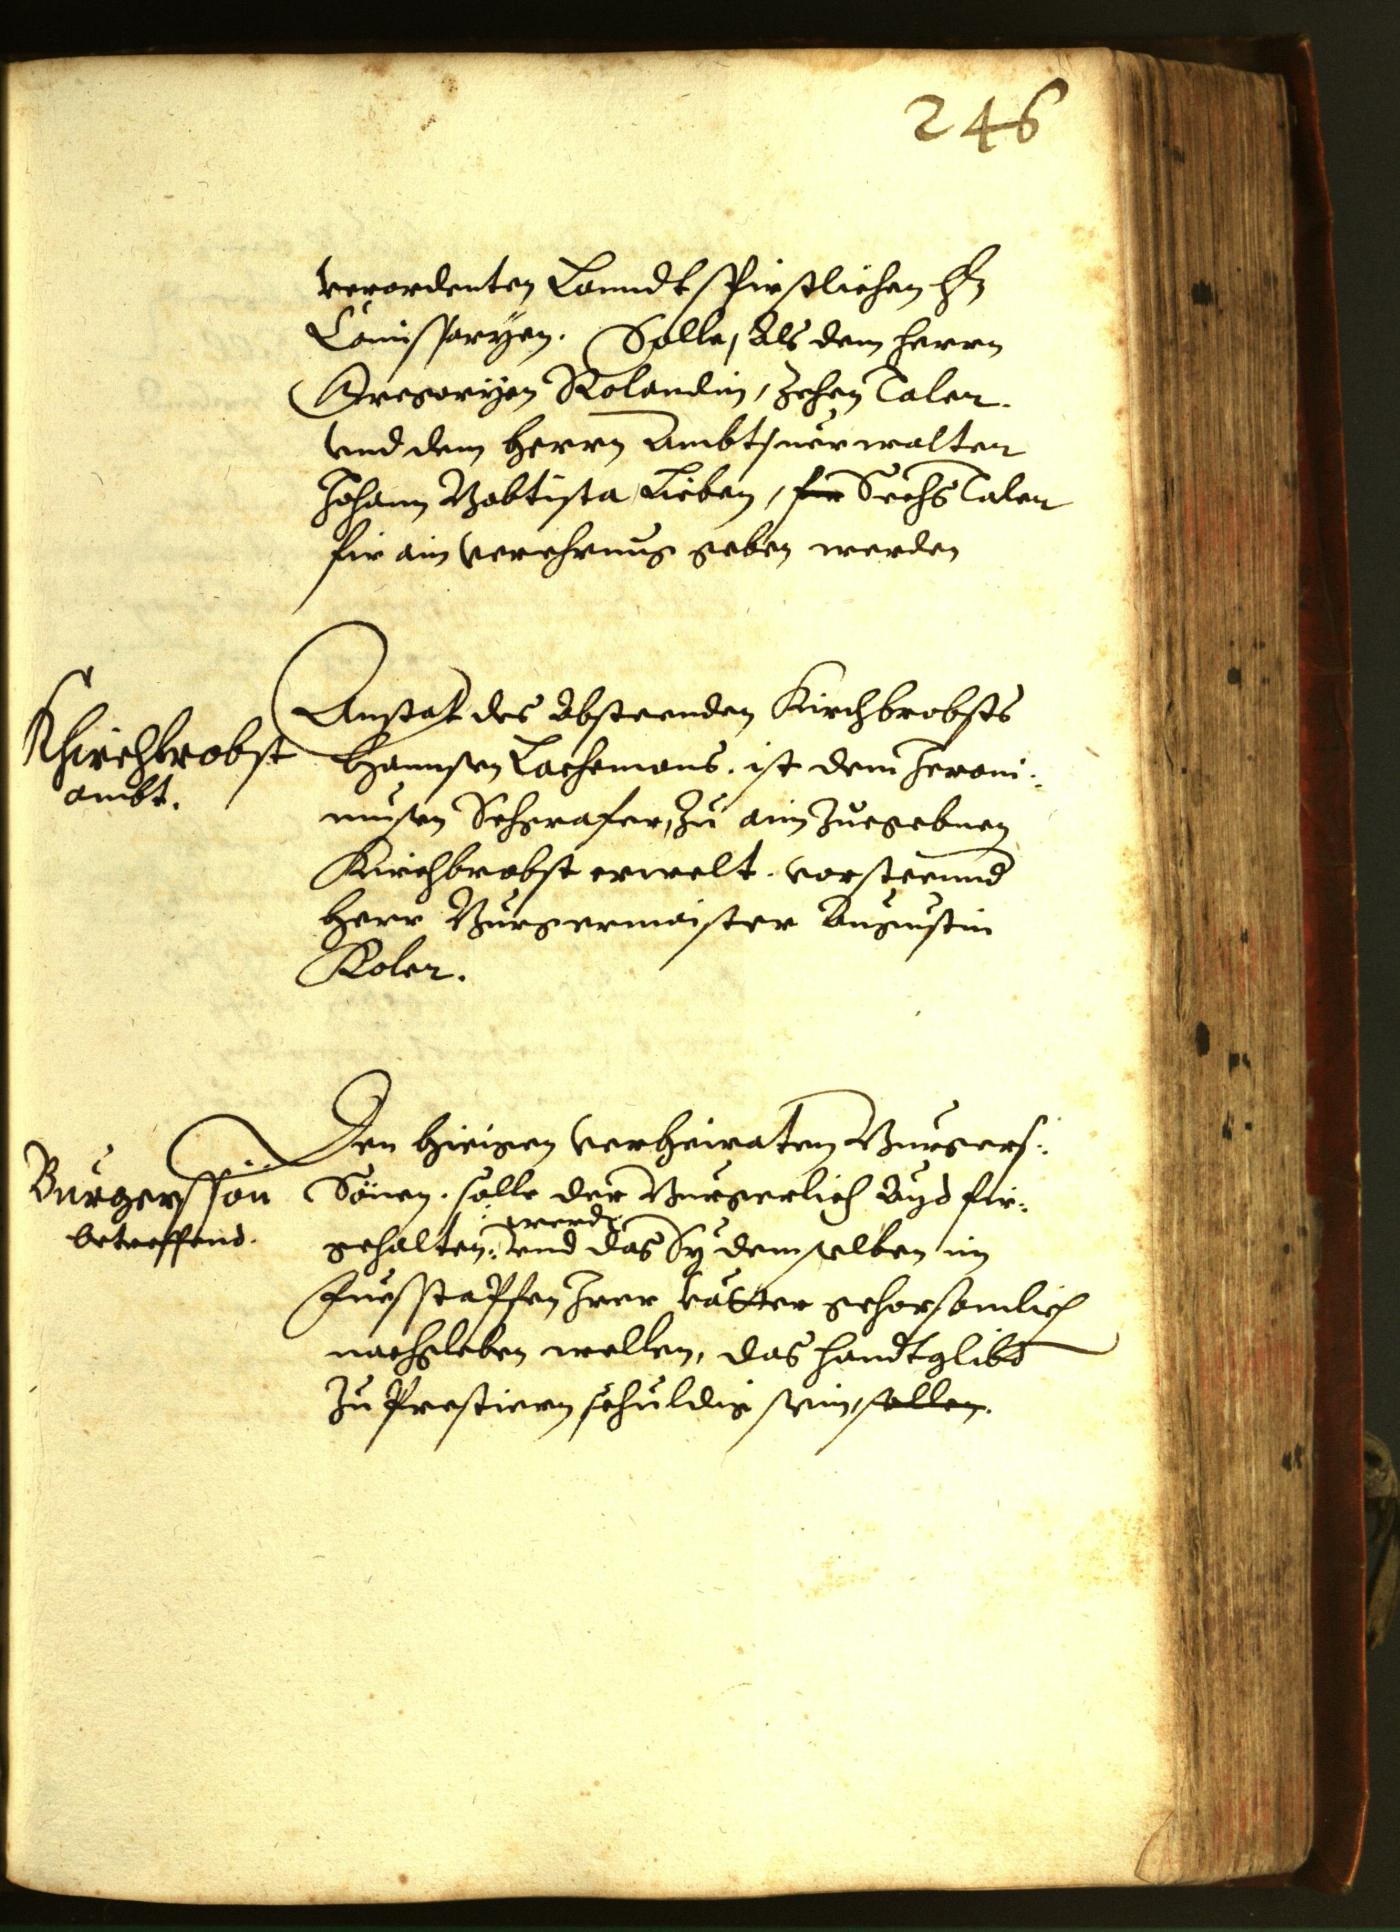 246
verordenten Lanndtsfirstlichen Hn
Comissaryen. Solle, Als dem herrn
Gregoryen Rolandin, Zehen Taler.
vnd dem herrn Ambtsverwalter
Johann Babtista Lieben, fir Sechs Taler
fir ain verehrnug geben werden
Khirchbrobst
ambt.
Anstat des Absteenden Kirchbrobsts
Hannsen Lachemans. ist dem Jeroni:
musen Schgrafer, Zu aim Zuegebnen
Kirchbrobst erwelt. vorsteennd
herr Burgermaister Augustin
Koler.
Burgerssön
betreffend.
Den hiesigen verheiraten Burgers:
Sönen. solle der Burgerlich Ayd fir:
werdn
gehalten: vnd das Sy demselben im
Fuesstapffen Irer vätter gehorsamlich
nachgleben wellen, das handtglibd
Zu Prestiern schuldig sein, sollen.